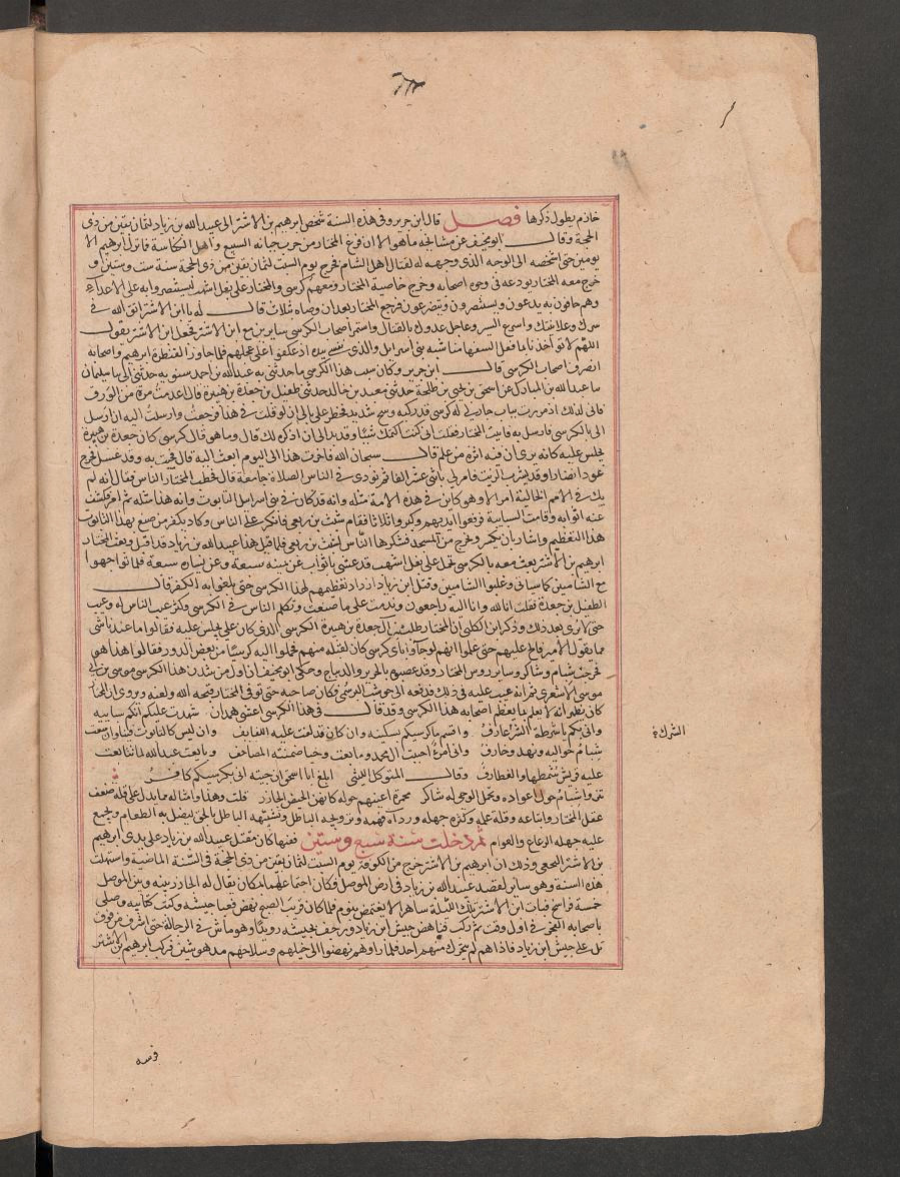 خازم يطول ذكرها فصل قال ابن جرير وفي هذه السنة شخص ابرهيم بن الاشتر الى عبيد الله بن زياد لثمان بقين من ذى
الحجة وقال ابو مخنف عن مشايخه ما هو الا ان فرغ المختار من حرب جبانة السبيع واهل الكناسة فما نزل ابرهيم الا
يومين حتى اشخصه الى الوجه الذى وجهه له لقتال اهل الشام فخرج يوم السبت لثمان بقين من ذى الحجة سنة ست وستين و
خرج معه المختار يودعه فى وجوه اصحابه وخرج خاصة المختار ومعهم كرسى والمختار على بغل اشهب ليستنصروا به على الاعداء
وهم حافون به يدعون ويستنصرون ويتضرعون فرجع المختار بعد ان وصاه بثلاث قال له يا ابن الاشتر اتق الله فى
سرك وعلانيتك واسرع السير وعاجل عدوك بالقتال واستمر اصحاب الكرسى سايرين مع ابن الاشتر فجعل ابن الاشتر يقول
اللهم لا تؤاخذنا بما فعل السفهاء منا سنة بنى اسرايل والذى نفسى بيده اذ عكفوا على عجلهم فلما جاوز القنطرة ابرهيم واصحابه
انصرف اصحاب الكرسى قال ابن جرير وكان سبب هذا الكرسى ما حدثنى به عبد الله بن احمد بن شبويه حدثنى ابى ثنا سليمان
ثنا عبد الله بن المبارك عن اسحق بن يحيى بن طلحة حدثنى معبد بن خالد حدثنى طفيل بن جعدة بن هبيرة قال اعدمت مرة من الورق
فانى لذلك اذ مررت بباب جار لى له كرسى قد ركبه وسخ شديد فخطر على بالى ان لو قلت فى هذا فرجعت وارسلت اليه ان ارسل
الى بالكرسى فارسل به فاتيت المختار فقلت انى كنت اكتمك شيئا وقد بدا لى ان اذكره لك قال وما هو قال كرسى كان جعدة بن هبيرة
يجلس عليه كانه يرى ان فيه اثرة من علم قال سبحان الله فاخرت هذا الى اليوم ابعث اليه قال فجئت به وقد غسل فخرج
عودا نضارا وقد يشرب الزيت فامر لى باثنى عشر الفا ثم نودى فى الناس الصلاة جامعة قال فخطب المختار الناس فقال انه لم
يك فى الامم الخالية امر الا وهو كاين فى هذه الامة مثله وانه قد كان فى بنى اسرايل التابوت وانه هذا مثله ثم امر فكشف
عنه اثوابه وقامت السبايية فرفعوا ايديهم وكبروا ثلاثا فقام شبث بن ربعى فانكر على الناس وكاد يكفر من صنع بهذا التابوت
هذا التعظيم واشار بان يكسر ويخرج من المسجد فشكرها الناس لشبث بن ربعى فلما قيل هذا عبيد الله بن زياد قد اقبل وبعث المختار
ابرهيم بن الاشتر بعث معه بالكرسى يحمل على بغل اشهب قد غشى باثواب عن يمينه سبعة وعن يساره سبعة فلما تواجهوا
مع الشاميين كما سياتى وغلبوا الشاميين وقتل ابن زياد ازداد تعظيمهم لهذا الكرسى حتى بلغوا به الكفر قال
الطفيل بن جعدة فقلت انا لله وانا اليه راجعون وندمت على ما صنعت وتكلم الناس فى الكرسى وكثر عيب الناس له وغيب
حتى لا يرى بعد ذلك وذكر ابن الكلبى ان المختار طلب من ال جعدة بن هبيرة الكرسى الذى كان على يجلس عليه فقالوا ما عندنا شى
مما يقول الامير فالح عليهم حتى علموا انهم لو جاؤا باى كرسى كان لقبله منهم فحملوا اليه كرسيا من بعض الدور فقالوا هذا هو
فخرجت شبام وشاكر وساير رؤس المختار وقد عصبوه بالحرير والديباج وحكى ابو مخنف ان اول من سدن هذا الكرسى موسى بن ابى
موسى الاشعرى ثم انه عتب عليه فى ذلك فدفعه الى حوشب البرسمى فكان صاحبه حتى توفى المختار قبحه الله ولعنه ويروى ان المختار
كان يظهر انه لا يعلم بما يعظم اصحابه هذا الكرسى وقد قال فى هذا الكرسى اعشى همدان شهدت عليكم انكم سبايية
وانى بكم يا شرطة الشرك عارف واقسم ما كرسيكم بسكينة وان كان قد لفت عليه اللفايف وان ليس كالتابوت فينا وان سعت
شبام حواليه ونهد وخارف وانى امرؤ احببت ال محمد وتابعت وحيا ضمنته المصاحف وبايعت عبد الله لما تتابعت
عليه قريش شمطها والغطارف وقال المتوكل الليثى ابلغ ابا اسحق ان جيته انى بكرسيكم كافر
تنزوا شبام حول اعواده وتحمل الوحى له شاكر محمرة اعينهم حوله كانهن الحمص الحازر قلت وهذا وامثاله مما يدل على قلة ضعف
عقل المختار واتباعه وقلة علمه وكثرة جهله ورداة فهمه وترويجه الباطل وتشبيهه الباطل بالحق ليضل به الطغام ويجمع
عليه جهلة الرعاع والعوام ثم دخلت سنة سبع وستين ففيها كان مقتل عبيد الله بن زياد على يدى ابرهيم
بن الاشتر النخعى وذلك ان ابرهيم بن الاشتر خرج من الكوفة يوم السبت لثمان بقين من ذى الحجة فى السنة الماضية واستهلت
هذه السنة وهو ساير لقصد عبيد الله بن زياد فى ارض الموصل فكان اجتماعهما بمكان يقال له الخازر بينه وبين الموصل
خمسة فراسخ فبات ابن الاشتر تلك الليلة ساهرا لا يغتمض بنوم فلما كان قريب الصبح نهض فعبا جيشه وكتب كتايبه وصلى
باصحابه الفجر فى اول وقت ثم ركب فناهض جيش ابن زياد وزحف بجيشه رويدا وهو ماش فى الرجالة حتى اشرف من فوق
تل على جيش ابن زياد فاذا هم لم يتحرك منهم احد فلما راوهم نهضوا الى خيلهم وسلاحهم مدهوشين فركب ابرهيم بن الاشتر
الشرك
فرسه